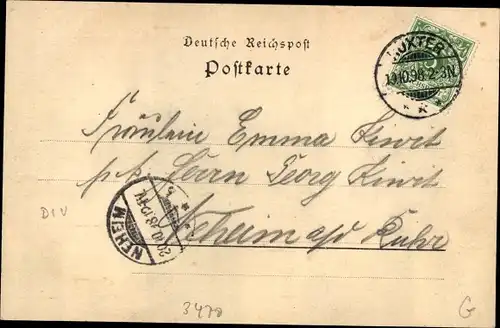 Deutsche Reichspost
Postkarte
HUXTER
19.10.98.2-3N.
* *
5
Fräulein Emma Kiwit
p. Ad. Herrn Georg Kiwit
Neheim a/d Ruhr
NEHEIM
20/10 98
DIV
3470
G